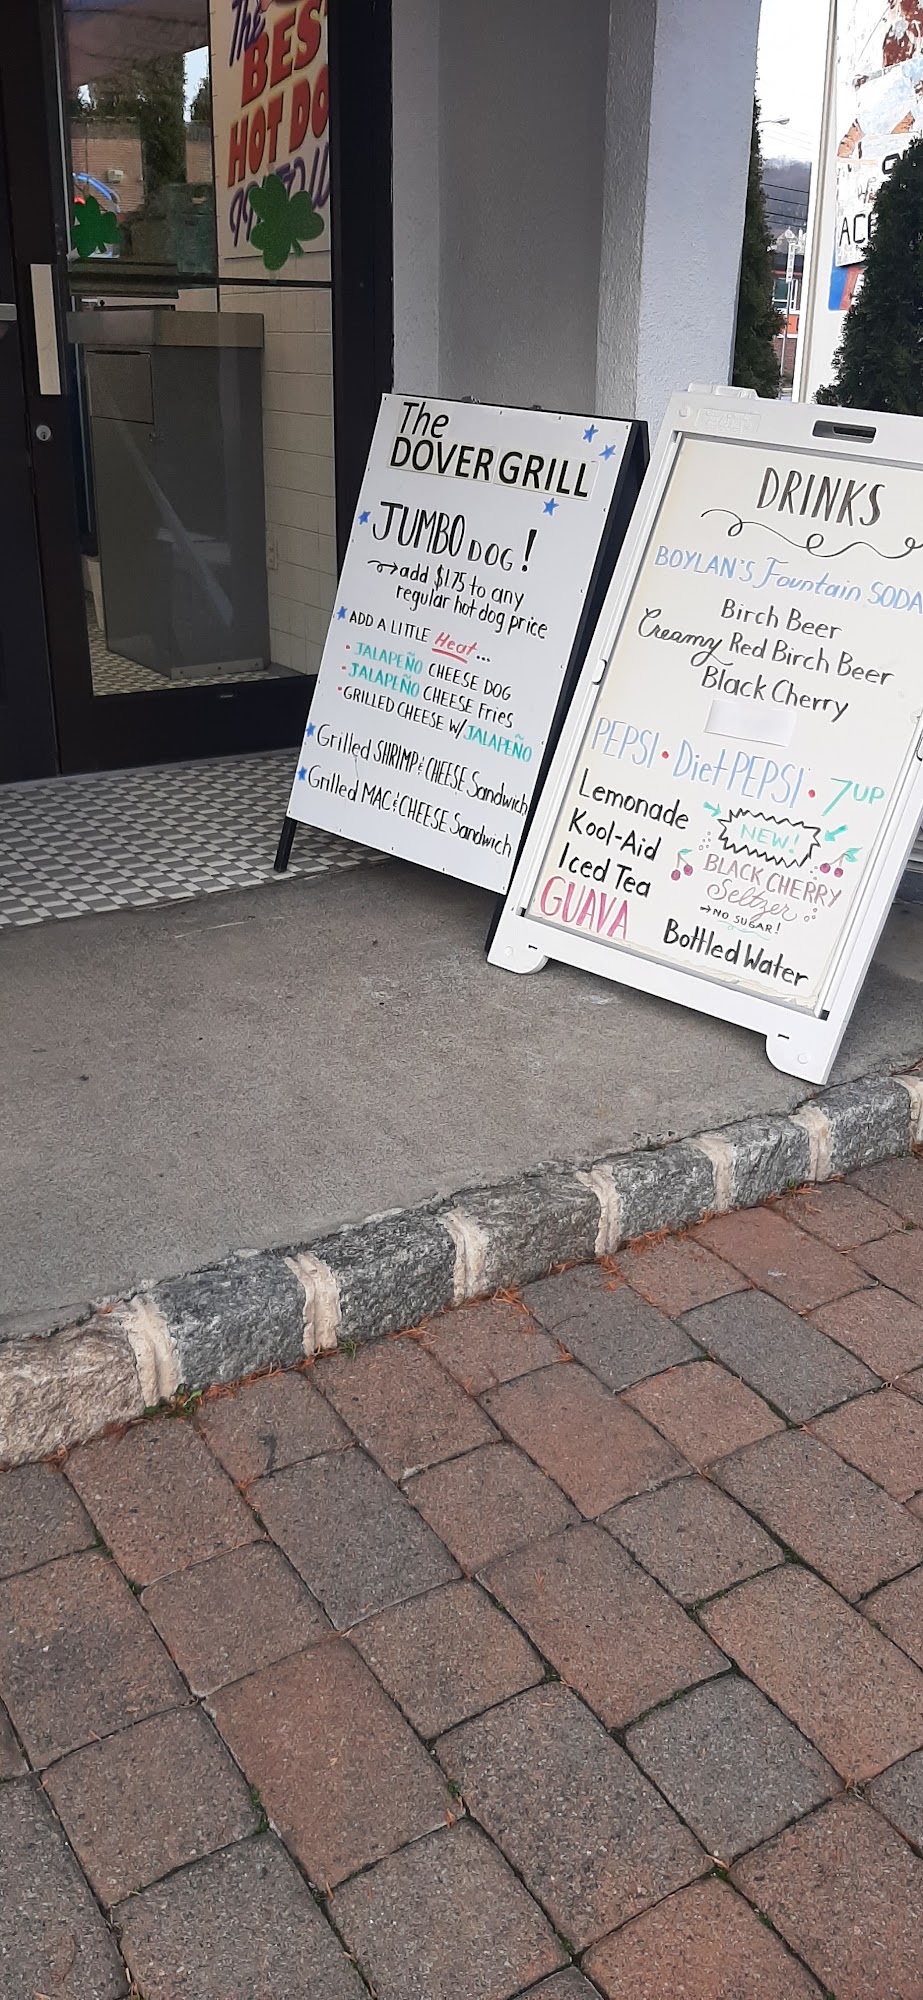 The
BES
HOT DO
The
DOVER GRILL
JUMBO DOG!
add $1.75 to any
regular hot dog price
ADD A LITTLE Heat...
• JALAPEÑO CHEESE DOG
• JALAPEÑO CHEESE Fries
• GRILLED CHEESE W/ JALAPEÑO
Grilled SHRIMP & CHEESE Sandwich
Grilled MAC & CHEESE Sandwich
DRINKS
BOYLAN'S Fountain SODA
Birch Beer
Creamy Red Birch Beer
Black Cherry
PEPSI • Diet PEPSI • 7UP
Lemonade
Kool-Aid
Iced Tea
GUAVA
NEW!
BLACK CHERRY
Seltzer
→ NO SUGAR!
Bottled Water